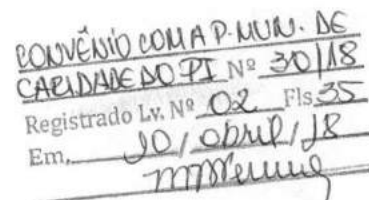 CONVÊNIO COM A P. MUN. DE
CARIDADE DO PI Nº 30/18
Registrado Lv. Nº 02 Fls 35
Em, 10/abril/18